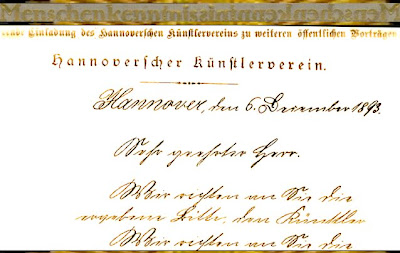 Einladung des Hannoverschen Künstlervereins zu weiteren öffentlichen Vorträgen
Hannoverscher Künstlerverein.
Hannover, den 6. December 1893.
Sehr geehrter Herr.
Wir richten an Sie die
ergebene Bitte, den Künstler
Wir richten an Sie die